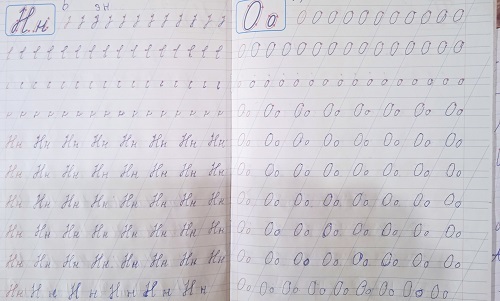 Н н
Нн Нн Нн Нн Нн Нн Нн Нн
Нн Нн Нн Нн Нн Нн Нн Нн
Нн Нн Нн Нн Нн Нн Нн Нн
Нн Нн Нн Нн Нн Нн Нн Нн
Нн Нн Нн Нн Нн Нн Нн Нн
Нн Н н Н н Н н Н н Н н
О о
О О О О О О О О О О О О
О О О О О О О О О О О О О О О О
о о о о о о о о о о о о о о о о
Оо Оо Оо Оо Оо Оо Оо Оо
Оо Оо Оо Оо Оо Оо Оо Оо
Оо Оо Оо Оо Оо Оо Оо Оо
Оо Оо Оо Оо Оо Оо Оо Оо
Оо Оо Оо Оо Оо Оо Оо Оо
Оо Оо Оо Оо Оо Оо Оо Оо
Оо Оо Оо Оо Оо Оо Оо Оо Оо